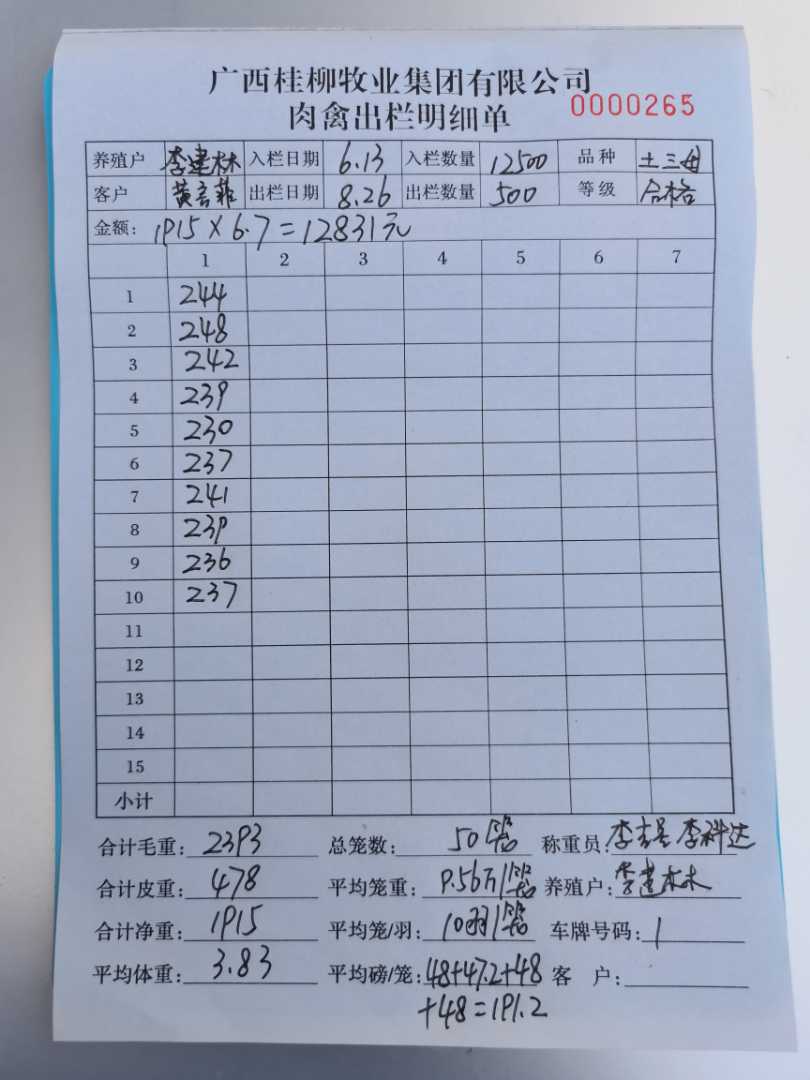 广西桂柳牧业集团有限公司
肉禽出栏明细单 0000265
养殖户 李建林 入栏日期 6.13 入栏数量 12500 品种 土三母
客户 黄菲 出栏日期 8.26 出栏数量 500 等级 合格
金额: 1915×6.7=12831元
1 2 3 4 5 6 7
1 244
2 248
3 242
4 239
5 230
6 237
7 241
8 239
9 236
10 237
11
12
13
14
15
小计
合计毛重: 2393 总笼数: 50笼 称重员: 李 李科达
合计皮重: 478 平均笼重: 9.56斤/笼 养殖户: 李建林
合计净重: 1915 平均笼/羽: 10羽/笼 车牌号码: /
平均体重: 3.83 平均磅/笼: 48+47.2+48 客 户:
+48=191.2